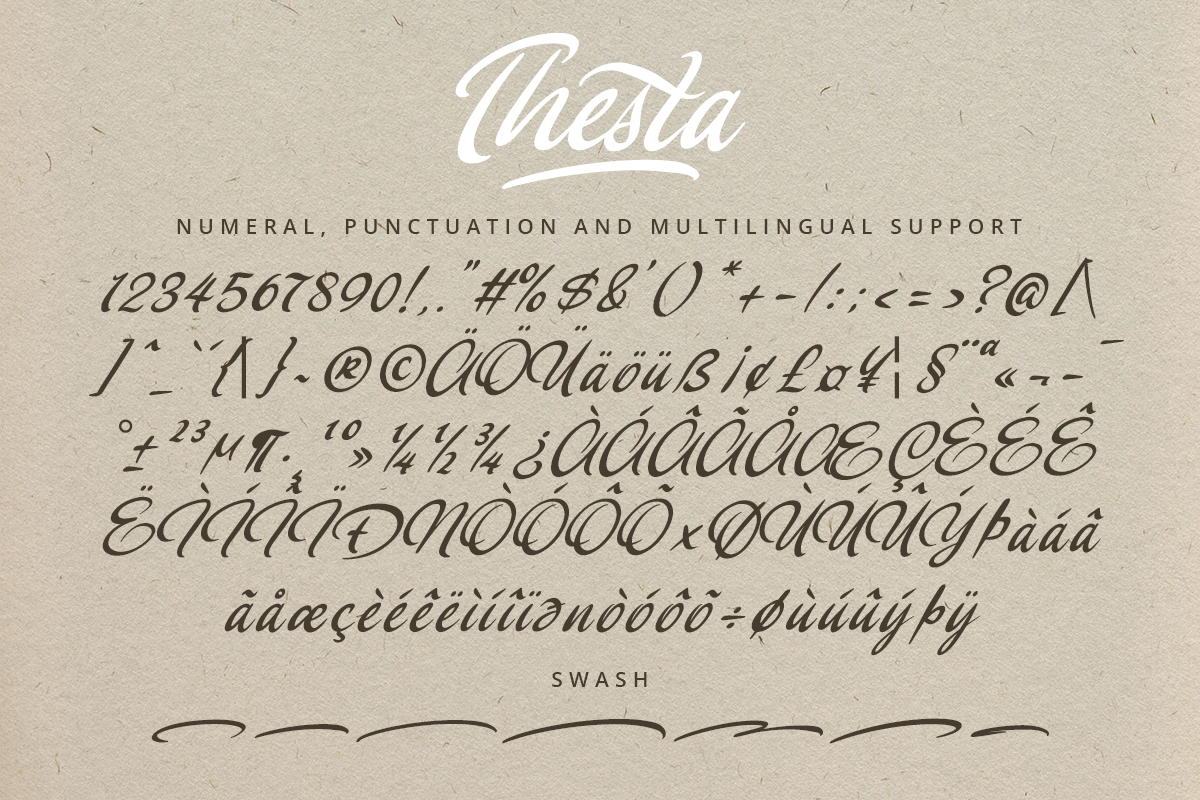 Thesta
NUMERAL, PUNCTUATION AND MULTILINGUAL SUPPORT
1234567890!,."#%$&'()*+-/:;<=>?@[\
]^_`´{|}~®©ÄÖÜäöüß¡¢£¤¥¦§¨ª«¬-¯
°±²³µ¶·¸¹º»¼½¾¿ÀÁÂÃÅÆÇÈÉÊ
ËÌÍÎÏÐNÒÓÔÕxØÙÚÛÝÞàáâ
ãåæçèéêëìíîï∂nòóôõ÷øùúûýþÿ
SWASH